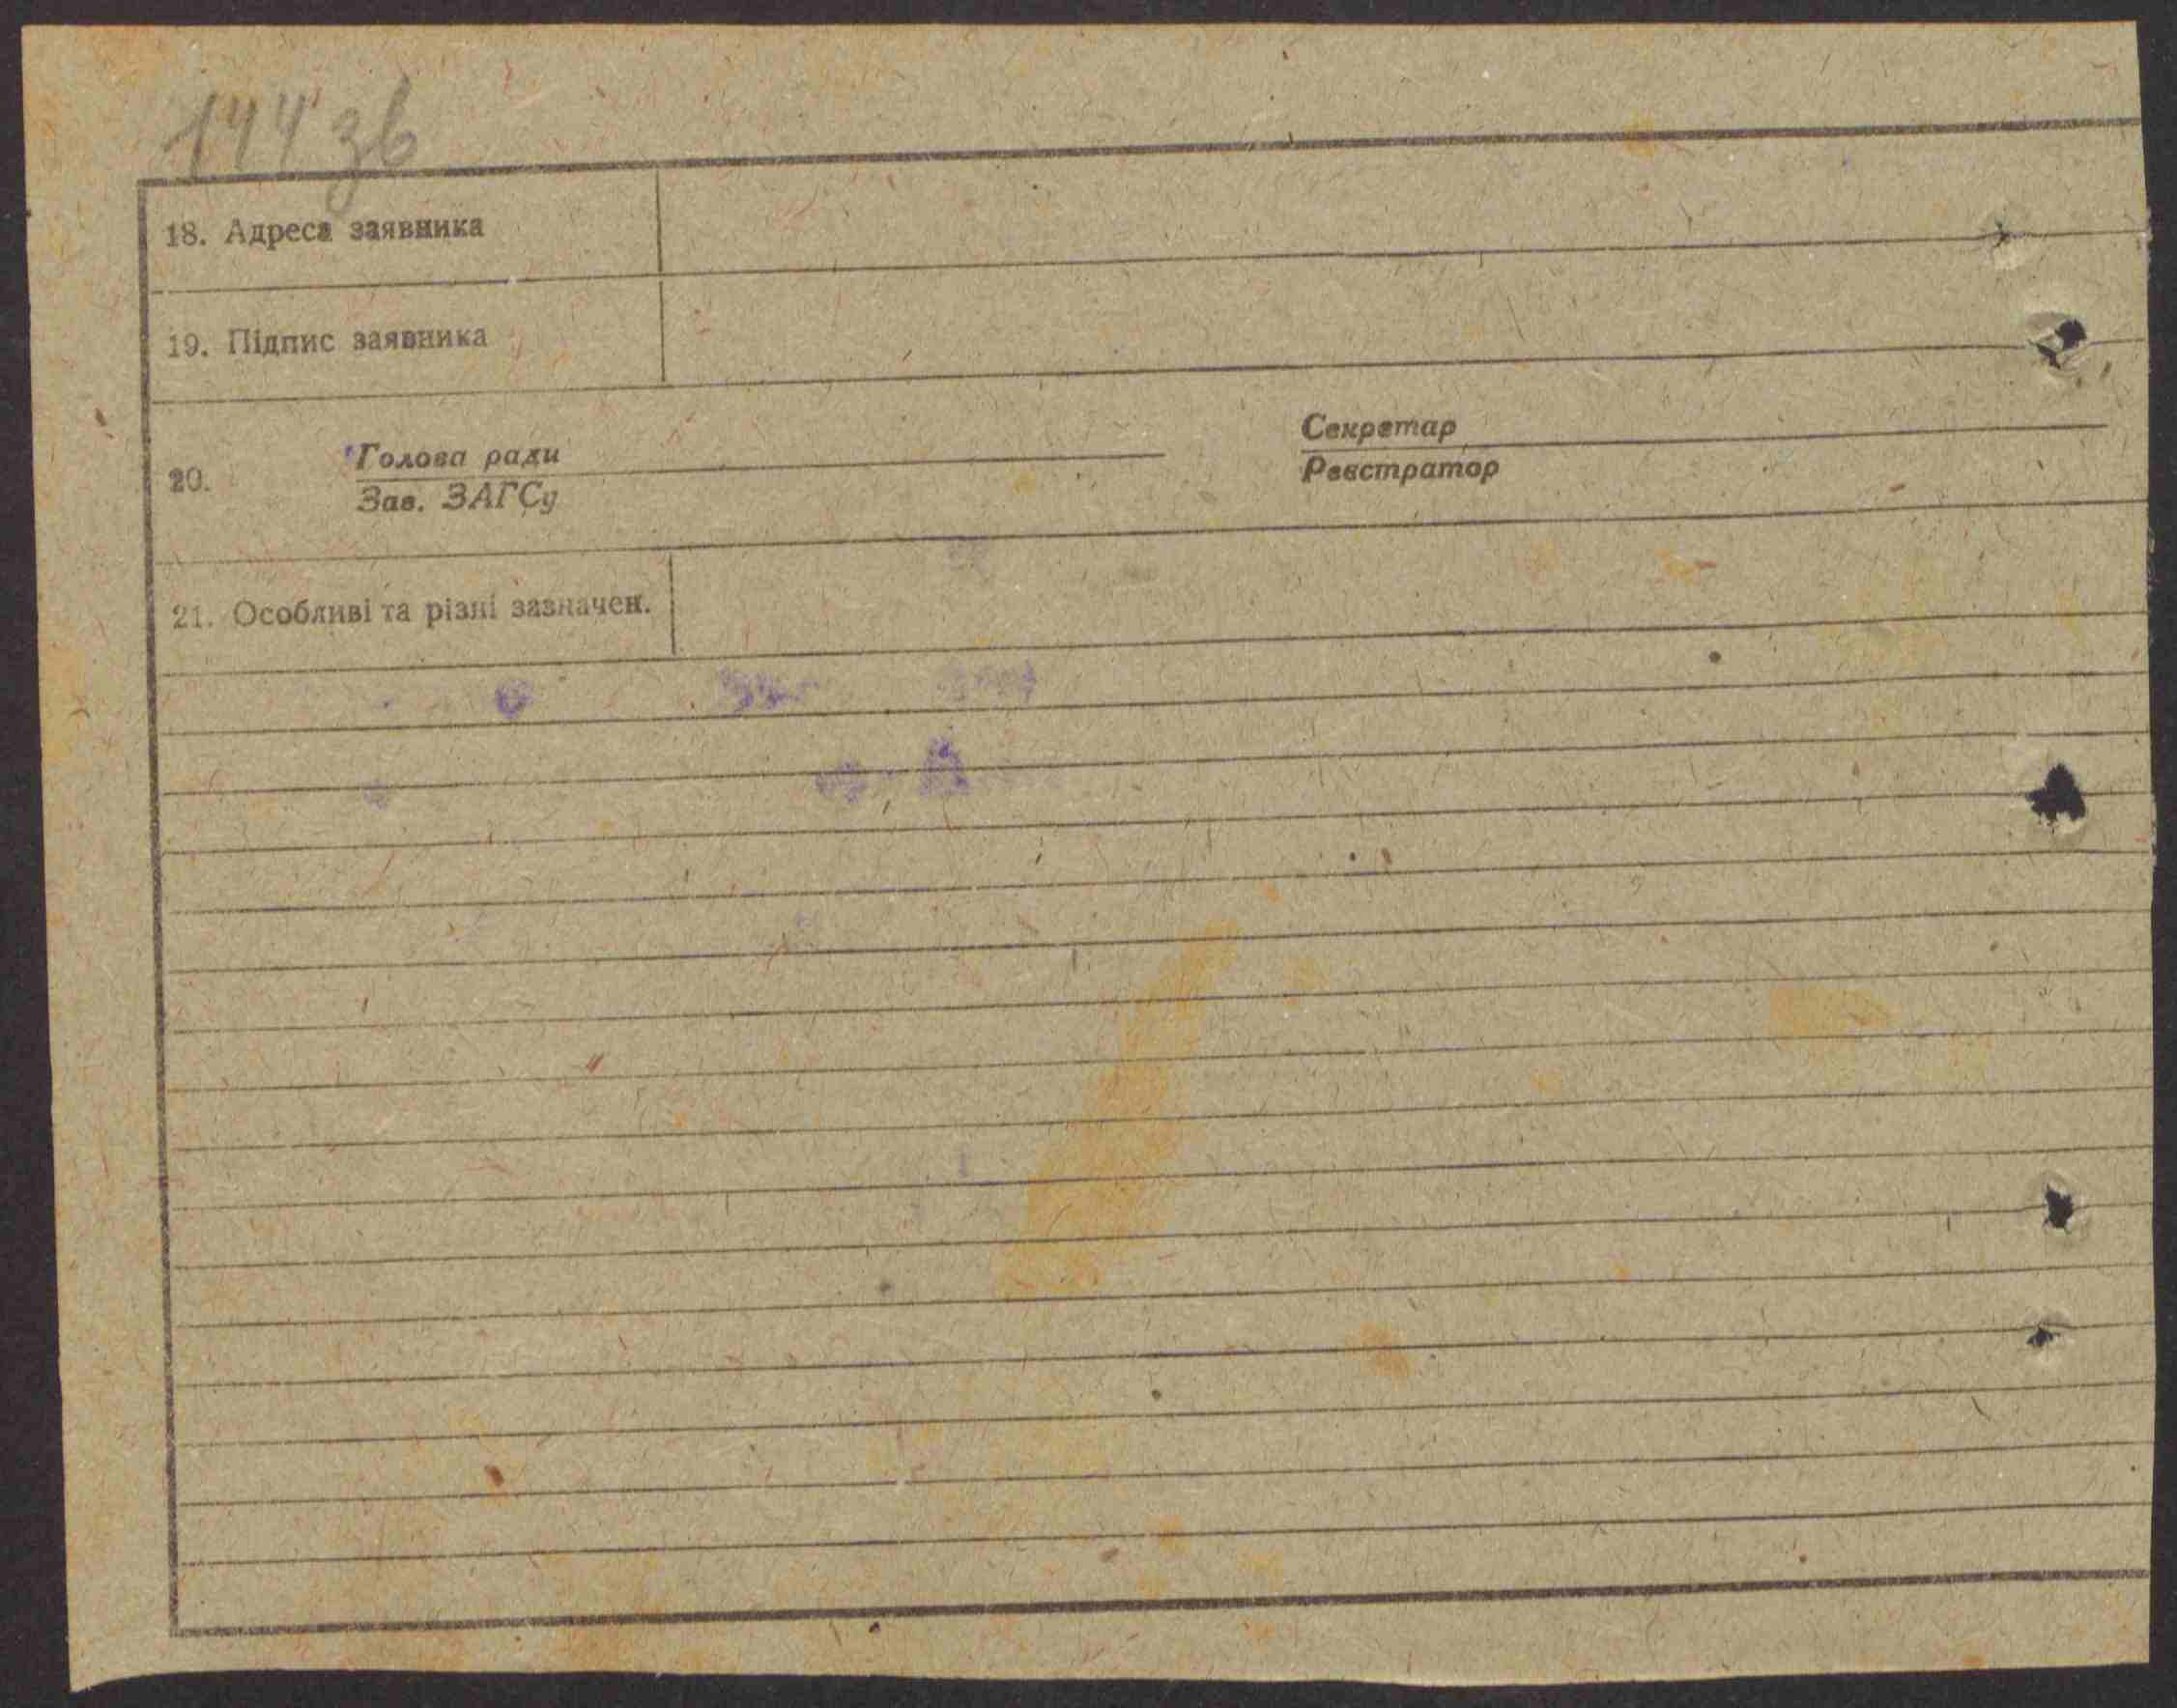 144 зв
18. Адреса заявника
19. Підпис заявника
20. Голова ради Секретар
Зав. ЗАГСу Реєстратор
21. Особливі та різні зазначен.